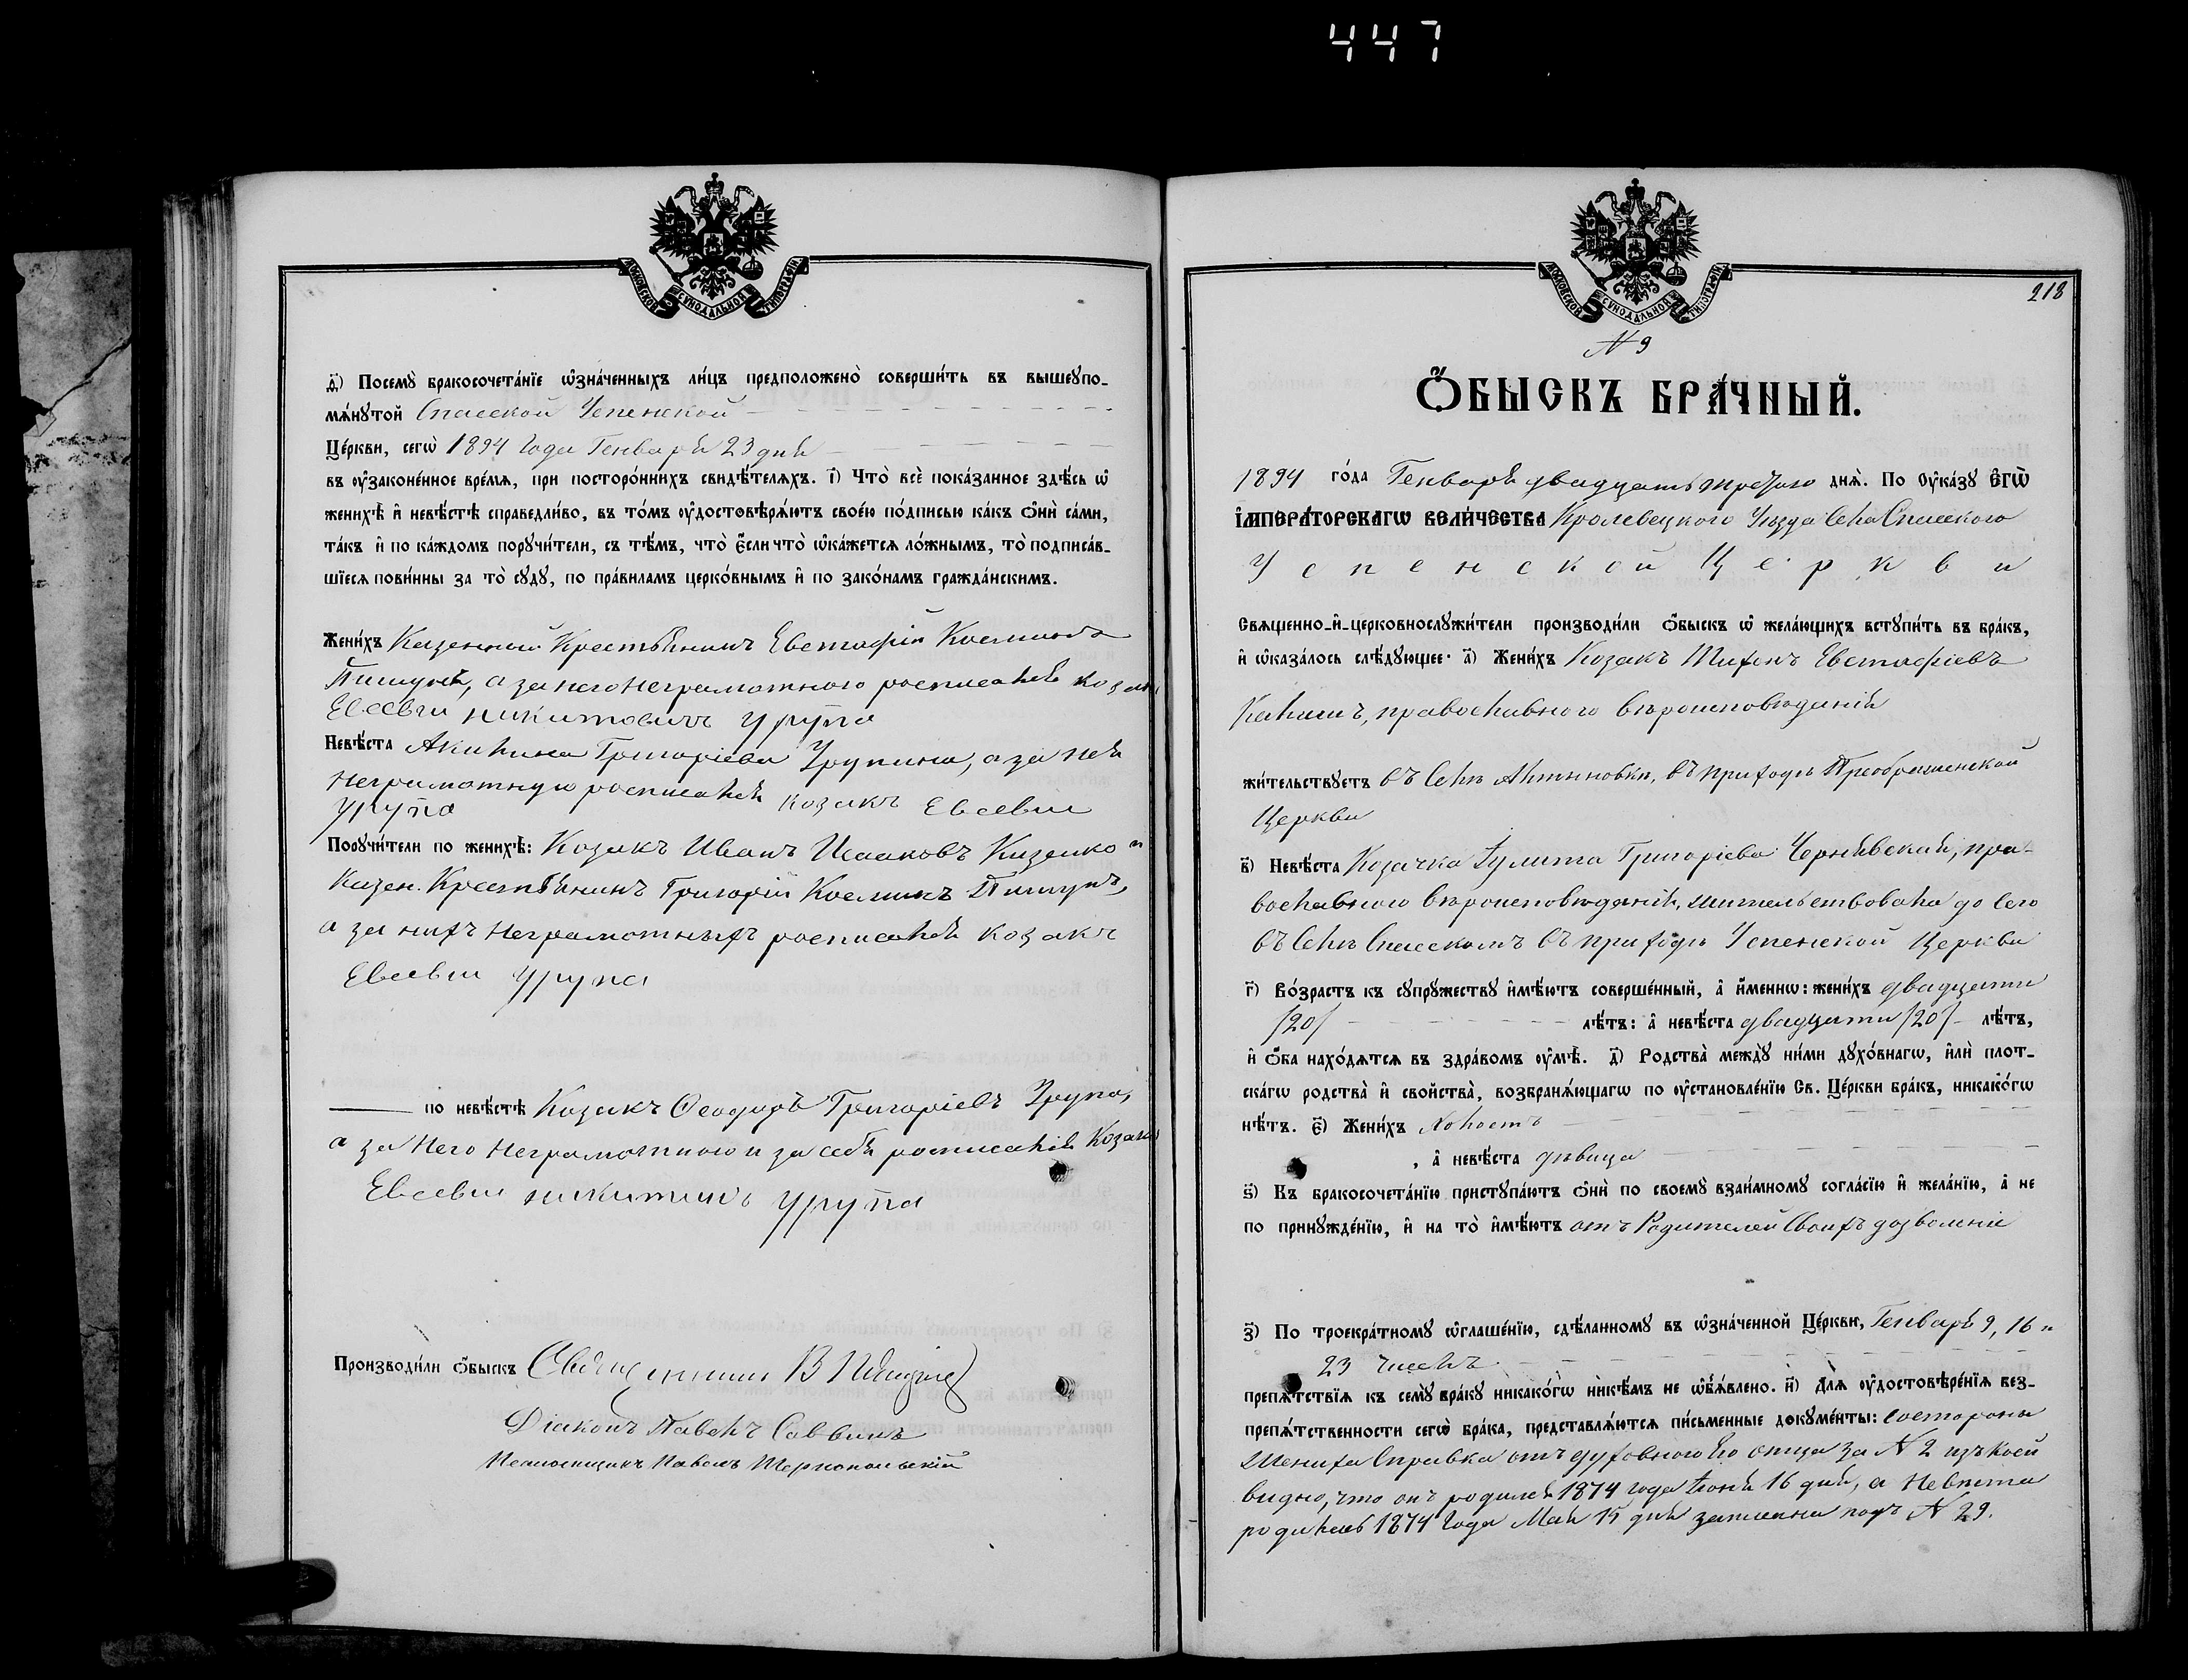 447
МОСКОВСКОЙ СУНОДАЛЬНОЙ ТИПОГРАФІИ
ѳ҃) Посемꙋ̀ бракосочета́нїе ѡ҆зна́ченныхъ ли́цъ предположено̀ соверши́ть въ вышеꙋпо-
мѧ́нꙋтой Спасской Успенской
Це́ркви, сегѡ̀ 1894 года Генваря 23 дня
въ ᲂу҆законе́нное вре́мѧ, при посторо́ннихъ свидѣ́телѧхъ. і҃) Что̀ всѐ пока́занное здѣ́сь ѡ҆
женихѣ̀ и҆ невѣ́стѣ справедли́во, въ то́мъ ᲂу҆достовѣрѧ́ютъ свое́ю по́дписью ка́къ ѻ҆нѝ са́ми,
та́къ и҆ по ка́ждомъ порꙋчи́тели, съ тѣ́мъ, что̀ є҆́сли что̀ ѡ҆ка́жетсѧ ло́жнымъ, то̀ подписа́в-
шїесѧ пови́нны за то̀ сꙋдꙋ̀, по пра́виламъ церко́внымъ и҆ по зако́намъ гражда́нскимъ.
Жени́хъ Казенный Крестьянинъ Евстафій Косминовъ
Пищунъ, а за него неграмотного росписался козакъ
Евсевій никитовичъ Урупа
Невѣ́ста Акилина Григоріева Урупина, а за нея
неграмотную росписался козакъ Евсевій
Урупа
Порꙋчи́тели по женихѣ̀: Козакъ Иванъ Исааковъ Кизенко и
Казен. Крестьянинъ Григорій Косминъ Пищунъ,
а за нихъ неграмотныхъ росписался козакъ
Евсевій Урупа
по невѣ́стѣ Козакъ Ѳеодоръ Григоріевъ Урупа,
а за него неграмотного и за себя росписался Козакъ
Евсевій никитинъ Урупа
Производи́ли ѻ҆́быскъ Священникъ В
Діаконъ Павелъ Саввинъ
Псаломщикъ Павелъ Тернопольскій
МОСКОВСКОЙ СУНОДАЛЬНОЙ ТИПОГРАФІИ
218
N 9
Ѻ҆́БЫСКЪ БРА́ЧНЫЙ.
1894 го́да Генваря двадцать третьего днѧ̀. По ᲂу҆ка́зꙋ Є҆ГѠ̀
І҆МПЕРА́ТОРСКАГѠ ВЕЛИ́ЧЕСТВА Кролевецкого Уѣзда Села Спасского
Успенской Церкви
Свѧще́нно-и҆-церковнослꙋжи́тели производи́ли ѻ҆́быскъ ѡ҆ жела́ющихъ встꙋпи́ть въ бра́къ,
и҆ ѡ҆каза́лось слѣ́дꙋющее: а҃) Жени́хъ Козакъ Тихонъ Евстафіевъ
Калашъ, православного вѣроисповѣданія
жи́тельствꙋетъ въ Селѣ Алтыновки, въ приходѣ Преображенской
Церкви
в҃) Невѣ́ста Козачка Іулита Григоріева Чернявская, пра-
вославного вѣроисповѣданія, жительствовала до сего
въ Селѣ Спасскомъ въ приходѣ Успенской Церкви
г҃) Во́зрастъ къ сꙋпрꙋ́жествꙋ и҆мѣ́ютъ соверше́нный, а҆ и҆́менно: жени́хъ двадцати
/20/ лѣ́тъ: а҆ невѣ́ста двадцати /20/ лѣ́тъ,
и҆ ѻ҆́ба нахо́дѧтсѧ въ здра́вомъ ᲂу҆мѣ̀. д҃) Родства̀ междꙋ̀ ни́ми дꙋхо́внагѡ, и҆лѝ плот-
ска́гѡ родства̀ и҆ сво́йства̀, возбранѧ́ющагѡ по ᲂу҆становле́нїю Св. Це́ркви бра́къ, никако́гѡ
нѣ́тъ. є҃) Жени́хъ Холостъ
, а҆ невѣ́ста дѣвица
ѕ҃) Къ бракосочета́нїю пристꙋпа́ютъ ѻ҆нѝ по своемꙋ̀ взаи́мномꙋ согла́сїю и҆ жела́нїю, а҆ не
по принꙋжде́нїю, и҆ на то̀ и҆мѣ́ютъ отъ Родителей Своихъ дозволеніе
з҃) По троекра́тномꙋ ѡ҆глаше́нїю, сдѣ́ланномꙋ въ ѡ҆зна́ченной Це́ркви, Генваря 9, 16 и
23 числъ
препѧ́тствїѧ къ семꙋ̀ бра́кꙋ никако́гѡ никѣ́мъ не ѡ҆б̾ѧ́влено. и҃) Длѧ̀ ᲂу҆достовѣре́нїѧ без-
препѧ́тственности сегѡ̀ бра́ка, представлѧ́ютсѧ пи́сьменные докꙋме́нты: состороны
Жениха Справка отъ духовного Его отца за N 2 изъ коей
видно, что онъ родился 1874 года Іюня 16 дня, а Невѣста
родилась 1874 года Мая 15 дня записана подъ N 29.